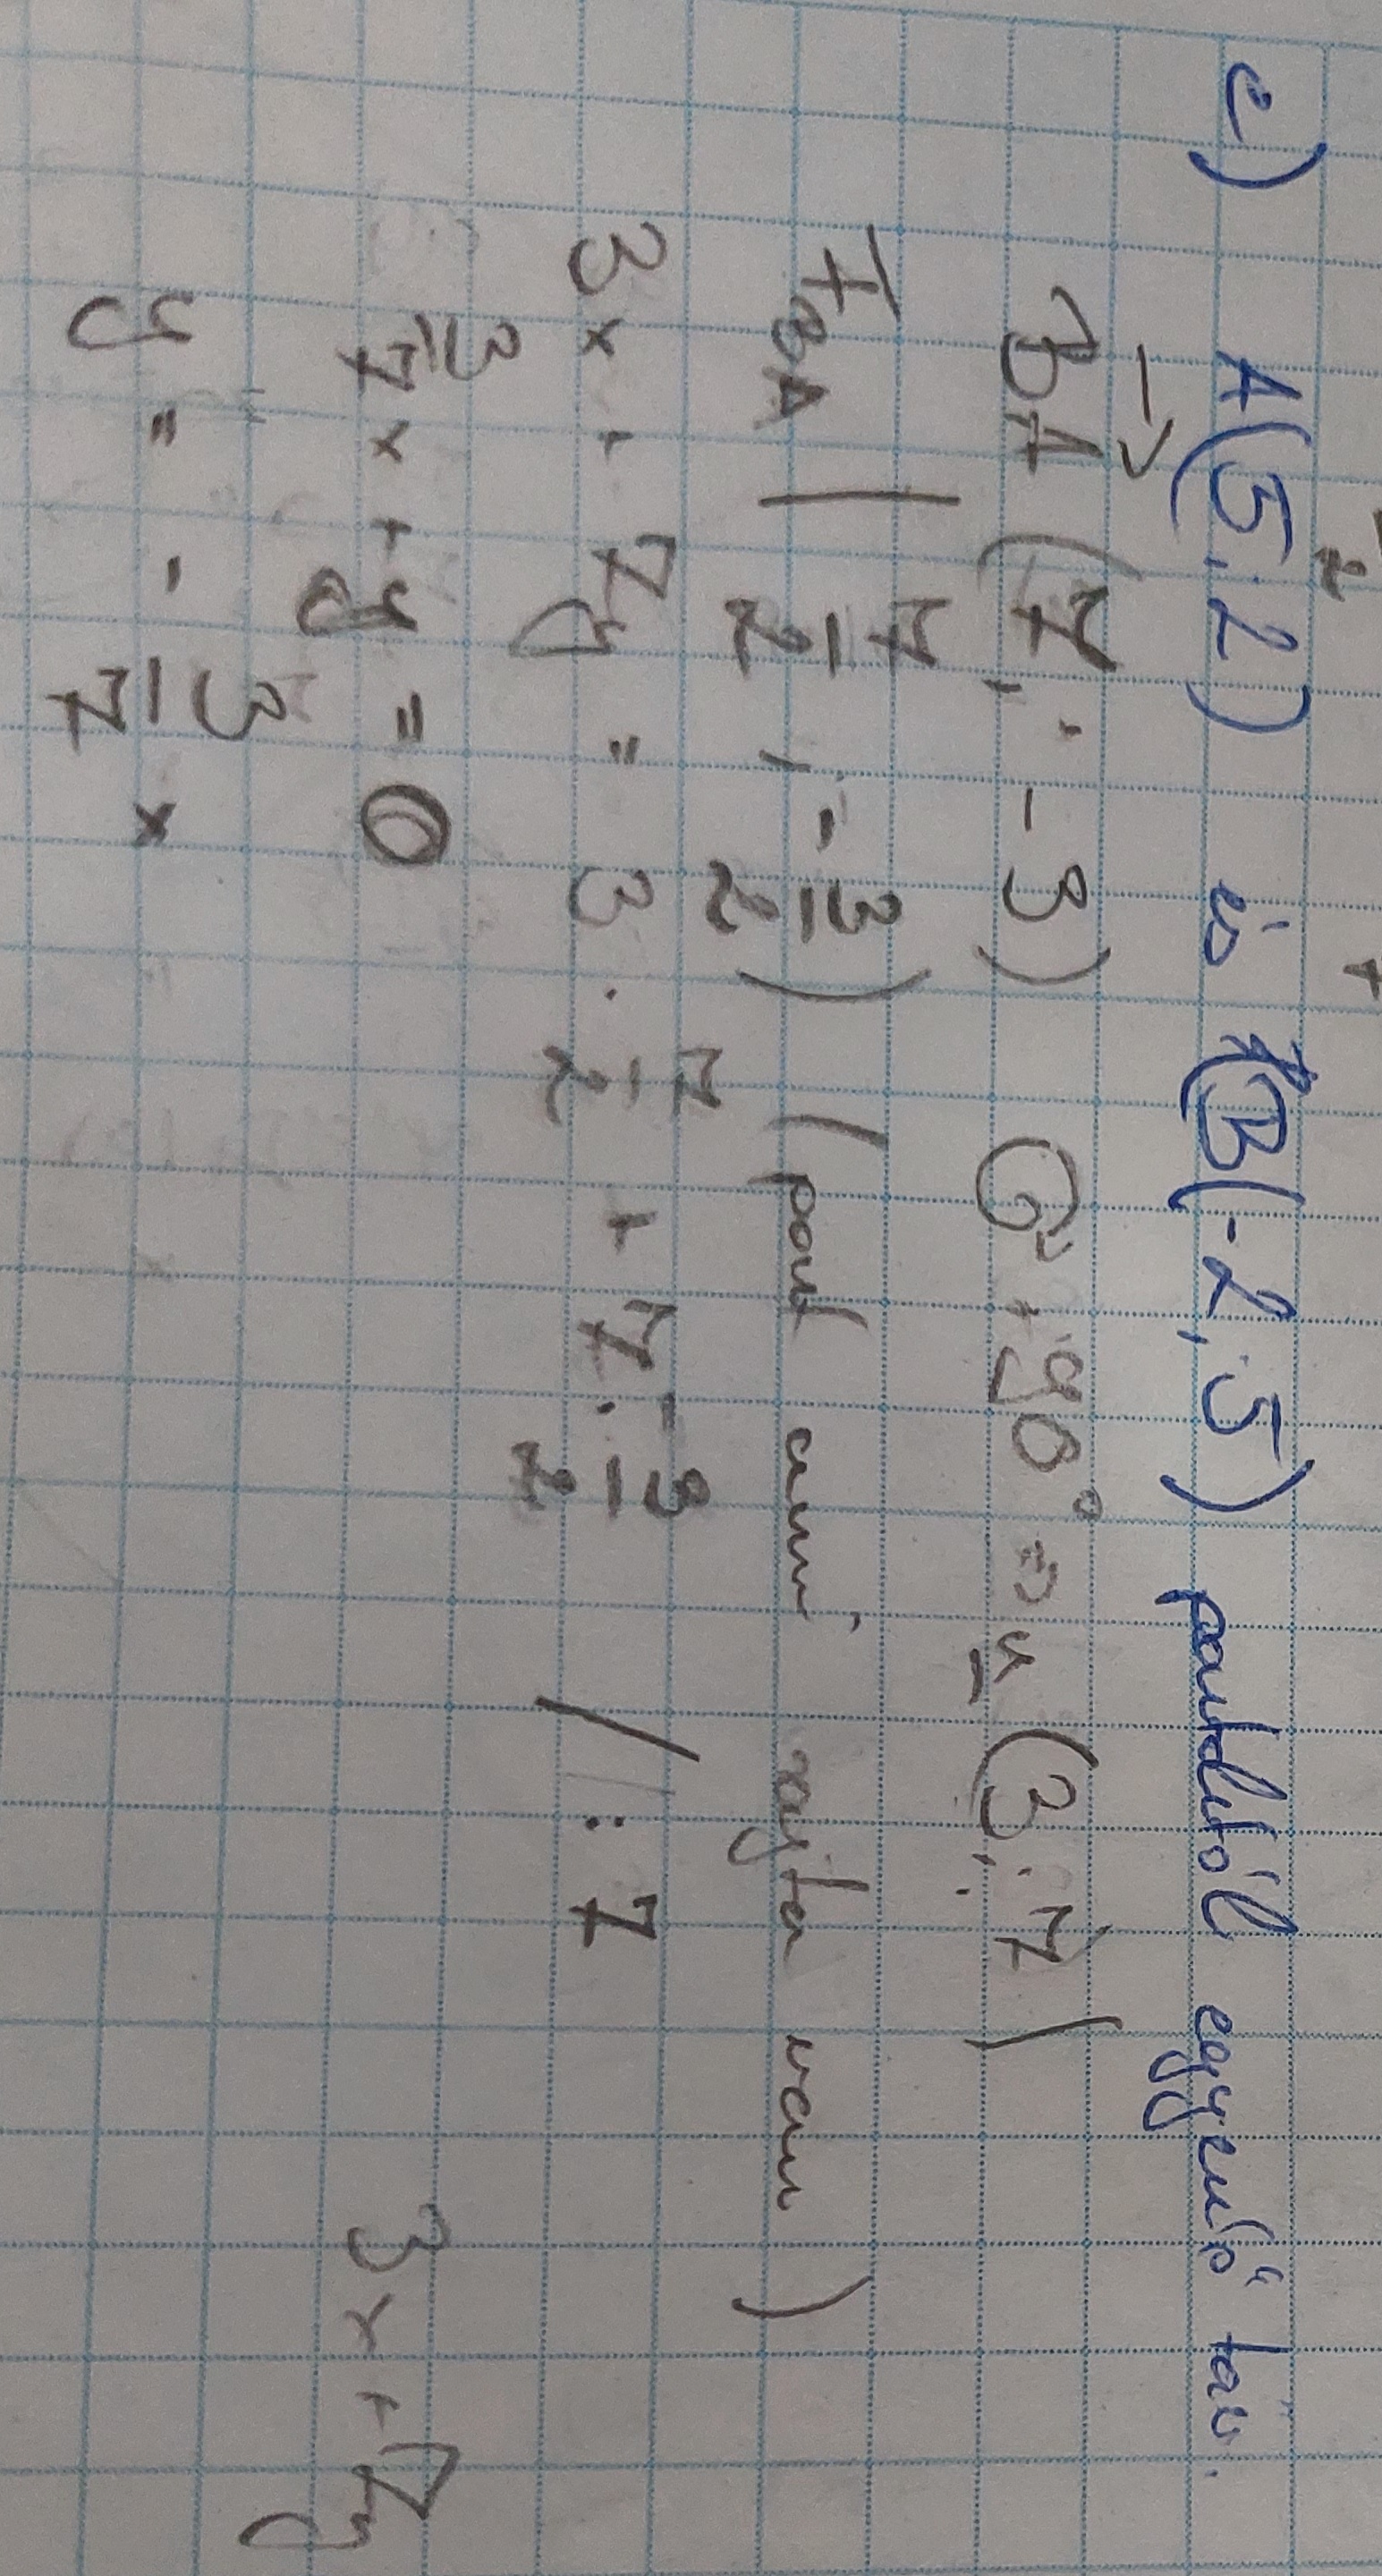 c) A(5;2) és B(-2;5) pontoktól egyenlő táv.
BA→ (7; -3) G + 90° => n (3; 7)
FBA (7/2; -3/2) (pont ami, rajta van)
3x + 7y = 3 · 7/2 + 7 · -3/2 / : 7
3/7 x + y = 0 3x + 7y
y = - 3/7 x